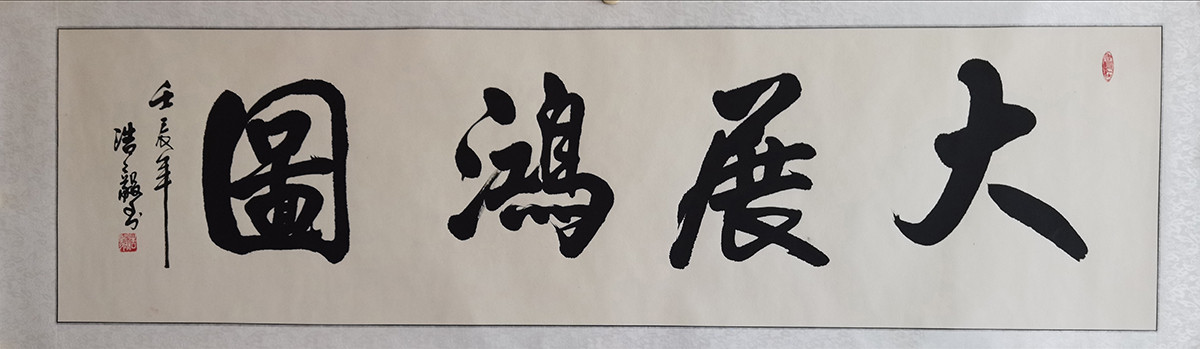 大展鴻圖
壬辰年
浩毅书